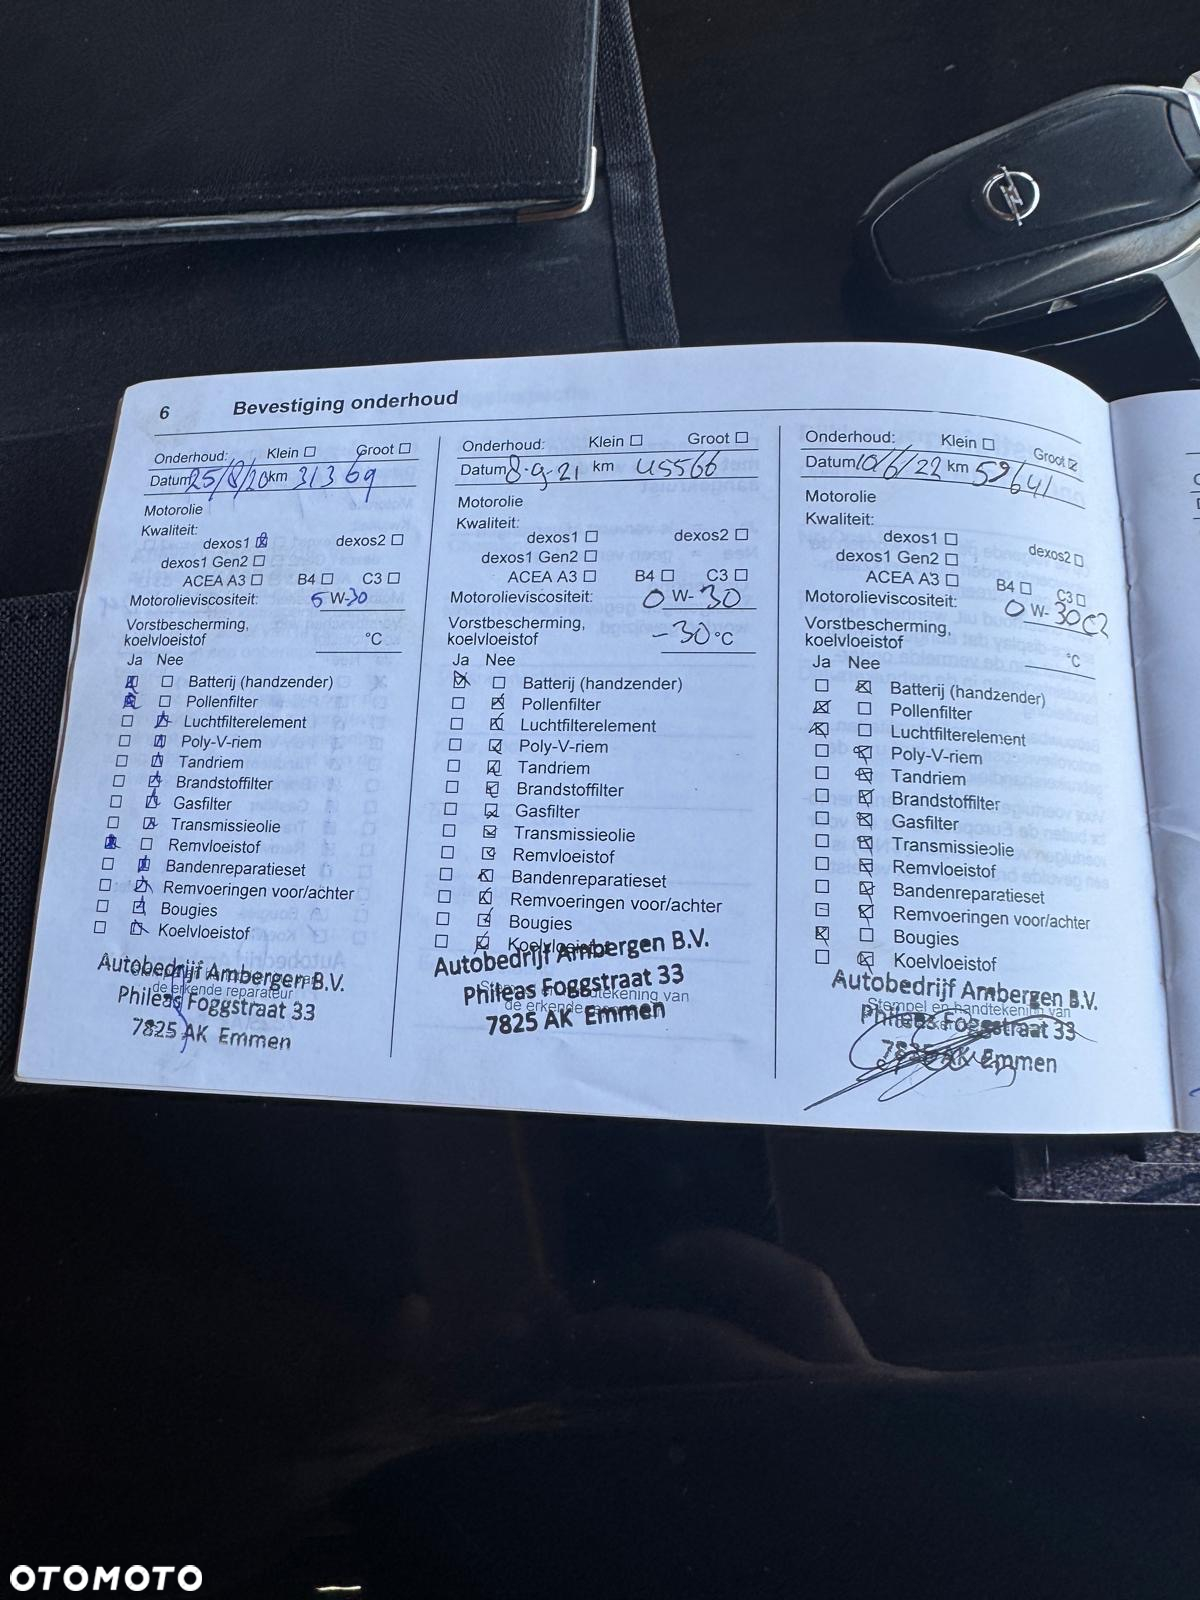 6 Bevestiging onderhoud
Onderhoud: Klein ☐ Groot ☐
Datum 25/8/20 km 31369
Motorolie
Kwaliteit:
dexos1 ☒ dexos2 ☐
dexos1 Gen2 ☐
ACEA A3 ☐ B4 ☐ C3 ☐
Motorolieviscositeit: 5 W-30
Vorstbescherming,
koelvloeistof °C
Ja Nee
☒ ☐ Batterij (handzender)
☒ ☐ Pollenfilter
☐ ☒ Luchtfilterelement
☐ ☒ Poly-V-riem
☐ ☒ Tandriem
☐ ☒ Brandstoffilter
☐ ☒ Gasfilter
☐ ☒ Transmissieolie
☒ ☐ Remvloeistof
☐ ☒ Bandenreparatieset
☐ ☒ Remvoeringen voor/achter
☐ ☒ Bougies
☐ ☒ Koelvloeistof
Autobedrijf Ambergen B.V.
de erkende reparateur
Phileas Foggstraat 33
7825 AK Emmen
Onderhoud: Klein ☐ Groot ☐
Datum 8-9-21 km 45566
Motorolie
Kwaliteit:
dexos1 ☐ dexos2 ☐
dexos1 Gen2 ☐
ACEA A3 ☐ B4 ☐ C3 ☐
Motorolieviscositeit: 0 W-30
Vorstbescherming,
koelvloeistof -30 °C
Ja Nee
☒ ☐ Batterij (handzender)
☐ ☒ Pollenfilter
☐ ☒ Luchtfilterelement
☐ ☒ Poly-V-riem
☐ ☒ Tandriem
☐ ☒ Brandstoffilter
☐ ☒ Gasfilter
☐ ☒ Transmissieolie
☐ ☒ Remvloeistof
☐ ☒ Bandenreparatieset
☐ ☒ Remvoeringen voor/achter
☐ ☒ Bougies
☐ ☒ Koelvloeistof
Autobedrijf Ambergen B.V.
Phileas Foggstraat 33
7825 AK Emmen
Onderhoud: Klein ☐ Groot ☒
Datum 10/6/22 km 59641
Motorolie
Kwaliteit:
dexos1 ☐ dexos2 ☐
dexos1 Gen2 ☐
ACEA A3 ☐ B4 ☐ C3 ☐
Motorolieviscositeit: 0 W-30C2
Vorstbescherming,
koelvloeistof °C
Ja Nee
☐ ☒ Batterij (handzender)
☒ ☐ Pollenfilter
☒ ☐ Luchtfilterelement
☐ ☒ Poly-V-riem
☐ ☒ Tandriem
☐ ☒ Brandstoffilter
☐ ☒ Gasfilter
☐ ☒ Transmissieolie
☐ ☒ Remvloeistof
☐ ☒ Bandenreparatieset
☐ ☒ Remvoeringen voor/achter
☒ ☐ Bougies
☐ ☒ Koelvloeistof
Autobedrijf Ambergen B.V.
Stempel en handtekening van
Phileas Foggstraat 33
7825 AK Emmen
OTOMOTO